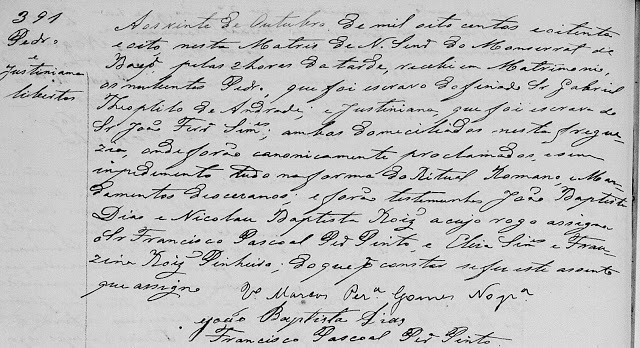 391
Pedro
e
Justiniana
libertos
Aos vinte de Outubro de mil oito centos e oitenta
e oito, nesta Matris de N. Senrª do Monserrat de
Baependy pelas 2 horas da tarde, recebi em Matrimonio,
os nubentes Pedro, que foi escravo do finado Sr Gabriel
Theoplilo de Andrade, e Justiniana, que foi escrava do
Sr João Ferrª Simes; ambos domeciliados nesta fregue-
zia, onde forão canonicamente proclamados, e sem
impedimento tudo na forma do Ritual Romano, e Man-
damentos diocesanos; e forão testimunhas João Baptista
Dias e Nicolau Baptista Roiz a cujo rogo assigna
o Sr Francisco Pascoal Pto Pinto, e Elvia Simes e Fran-
Roiz Pinheiro; do que p constar se fes este assento
que assigno
Vº Marcos Perª Gomes Nogrª
João Baptista Dias
Francisco Pascoal Pto Pinto